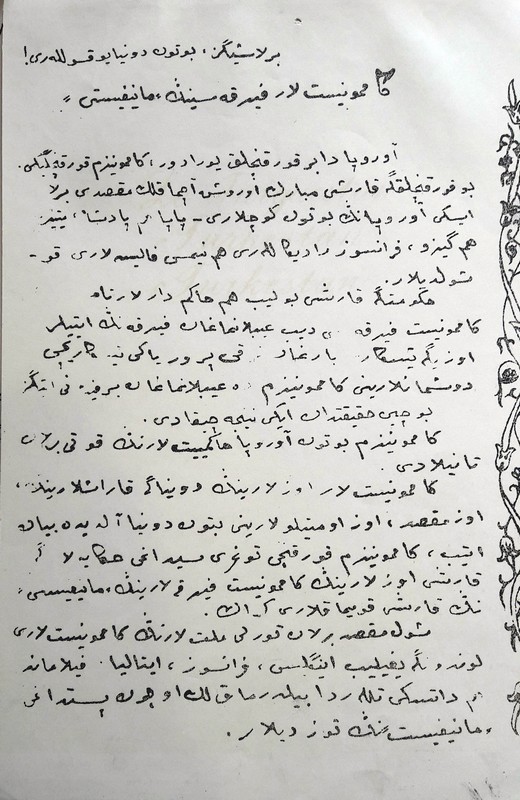 برلاشیگز، بوتون دونیا یوقسوللەری!
کاممونیست لار فیرقه سینڭ «مانیفیستی»
آوروپا دا بر قورقنچلق یورادور، کاممونیزم قورقنچلیگی.
بو قورقنچلقغه قارشی مبارك اوروش آچماقلك مقصدی برلا
ایسکی آوروپانڭ بوتون کوچلاری - پاپا هم پادشا،
هم گیزو، فرانسوز رادیکاللەری هم نیمس فالیسه لاری قو -
شولدیلار.
حکومتگه قارشی بولیب هم حاکم دار لار
کاممونیست فیرقه دیب عیبلانماغان فیرقه نڭ ایتیلر
اوزیگه
دوشمانلارینی کاممونیزم عیبلانماغان بر فیرقه نی ایتگز
بو چین حقیقتدان ایکی نیچه چیقادی.
کاممونیزم بوتون آوروپا حاکمیت لارنڭ قوتی برلان
تانیلادی.
کاممونیست لار اوزلارینڭ دونیاگه قاراشلارینڭ،
اوز مقصد، اوز اومتلولارینی بتون دونیا آلدیده بیان
ایتیب، کاممونیزم قورقنچی توغری سیداغی حکایه لا گه
قارشی اوزلارینڭ کاممونیست فیرقه لارینڭ «مانیفیسی»
نڭ قارشی قویماقلاری کراك.
شول مقصد برلان تورلی ملت لارنڭ کاممونیست لاری
لوندونگه یغیلیب انگلس، فرانسوز، ایتالیا، فیلاماند
هم داتسکی تللەردا بیلدرماق لك اوچون پستداغی
«مانیفیست»نڭ توزدیلار.